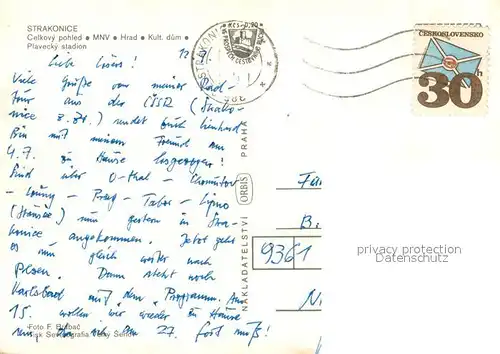 STRAKONICE
Celkový pohled ● MNV ● Hrad ● Kult. dům ●
Plavecký stadion
Liebe
Viele Grüße von meiner Rad-
tour aus der ČSSR (Strako-
nice 8.) sendet Euch
Bin mit meinem Freund am
4.7. zu Hause losgezogen!
Sind über O-thal - Chomutov
- Louny - Prag - Tabor - Lipno
(Stausee) nun gestern in Stra-
konice angekommen. Jetzt geht
es nun gleich weiter nach
Pilsen. Dann steht noch
Karlsbad auf dem Programm. Am
15. wollen wir wieder zu Hause
27. fort muß!
Foto F.
STRAKONI
Kčs 0,90
ČESKOSLOVENSKO
30 h
PRAHA
ORBIS
NAKLADATELSTVÍ
Fa
B.
9361
N
privacy protection
Datenschutz